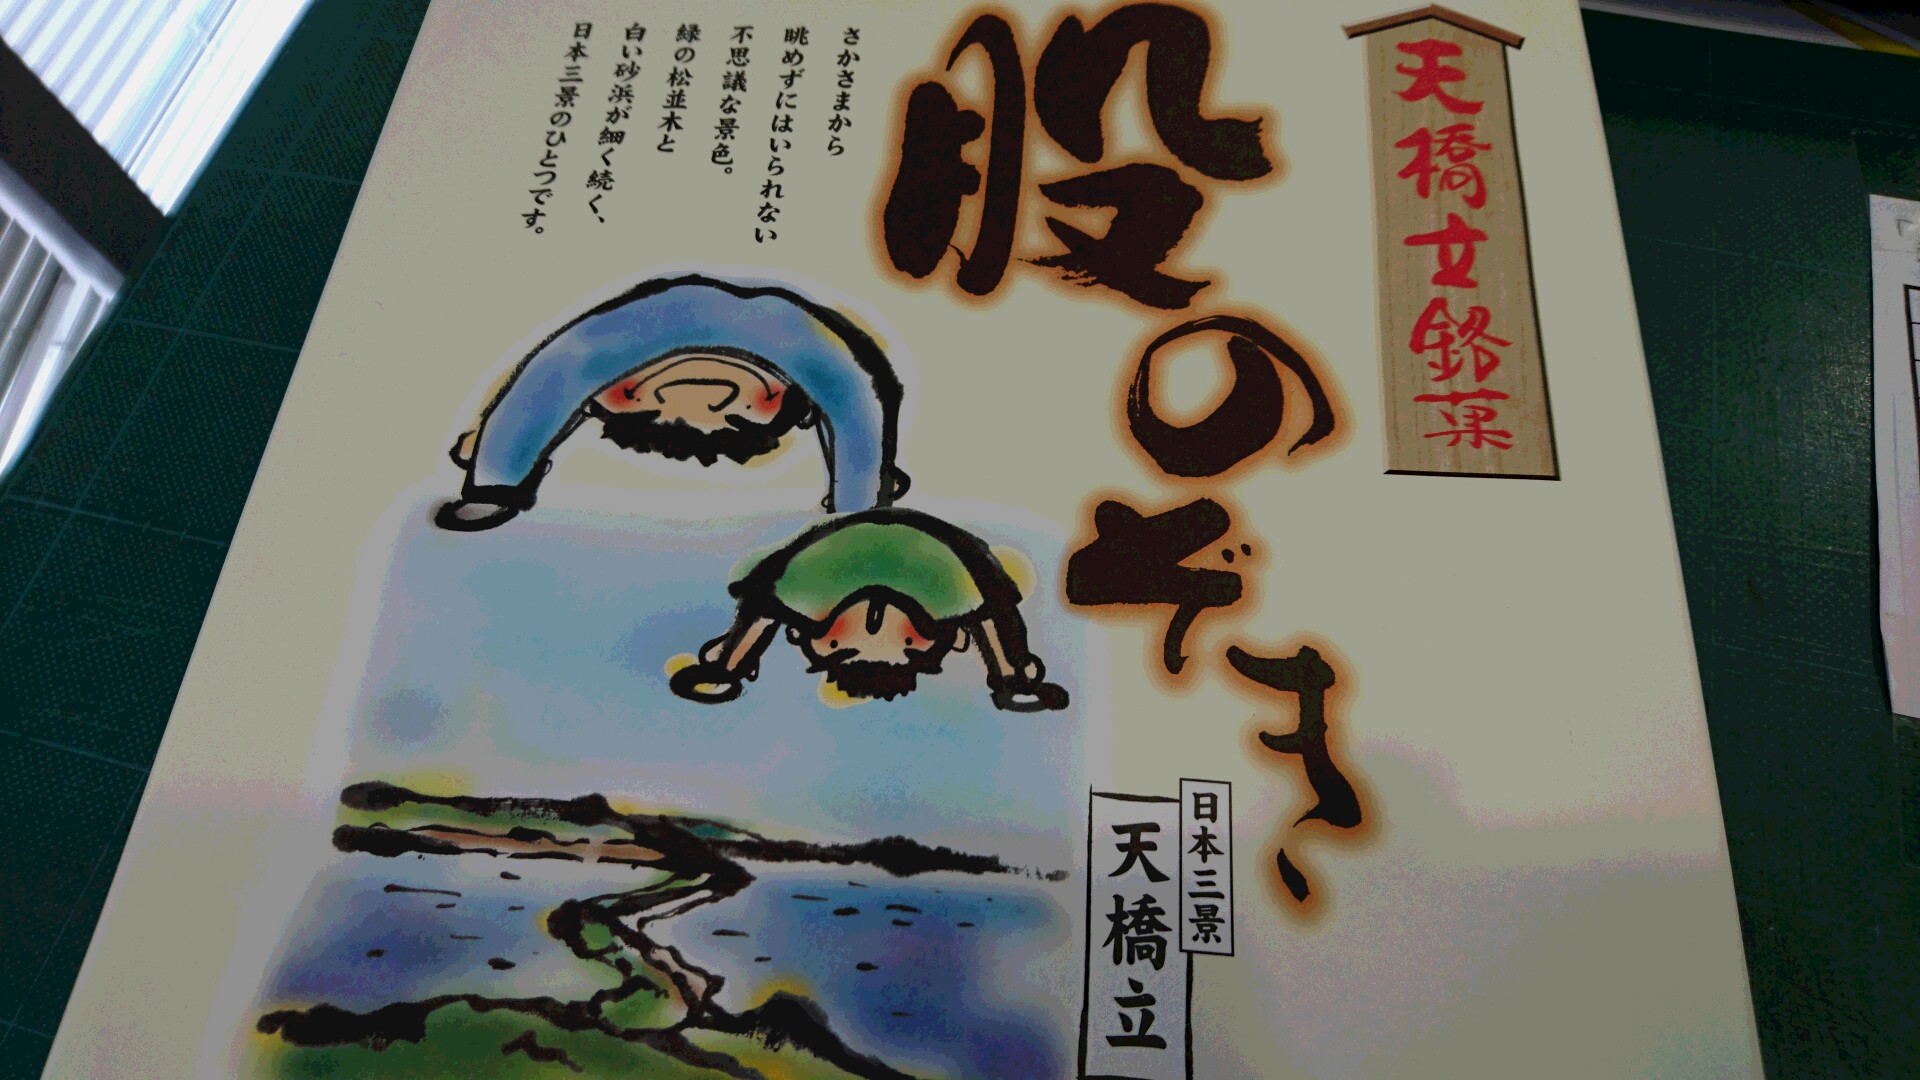 天橋立銘菓
股のぞき
さかさまから
眺めずにはいられない
不思議な景色。
緑の松並木と
白い砂浜が細く続く、
日本三景のひとつです。
日本三景
天橋立